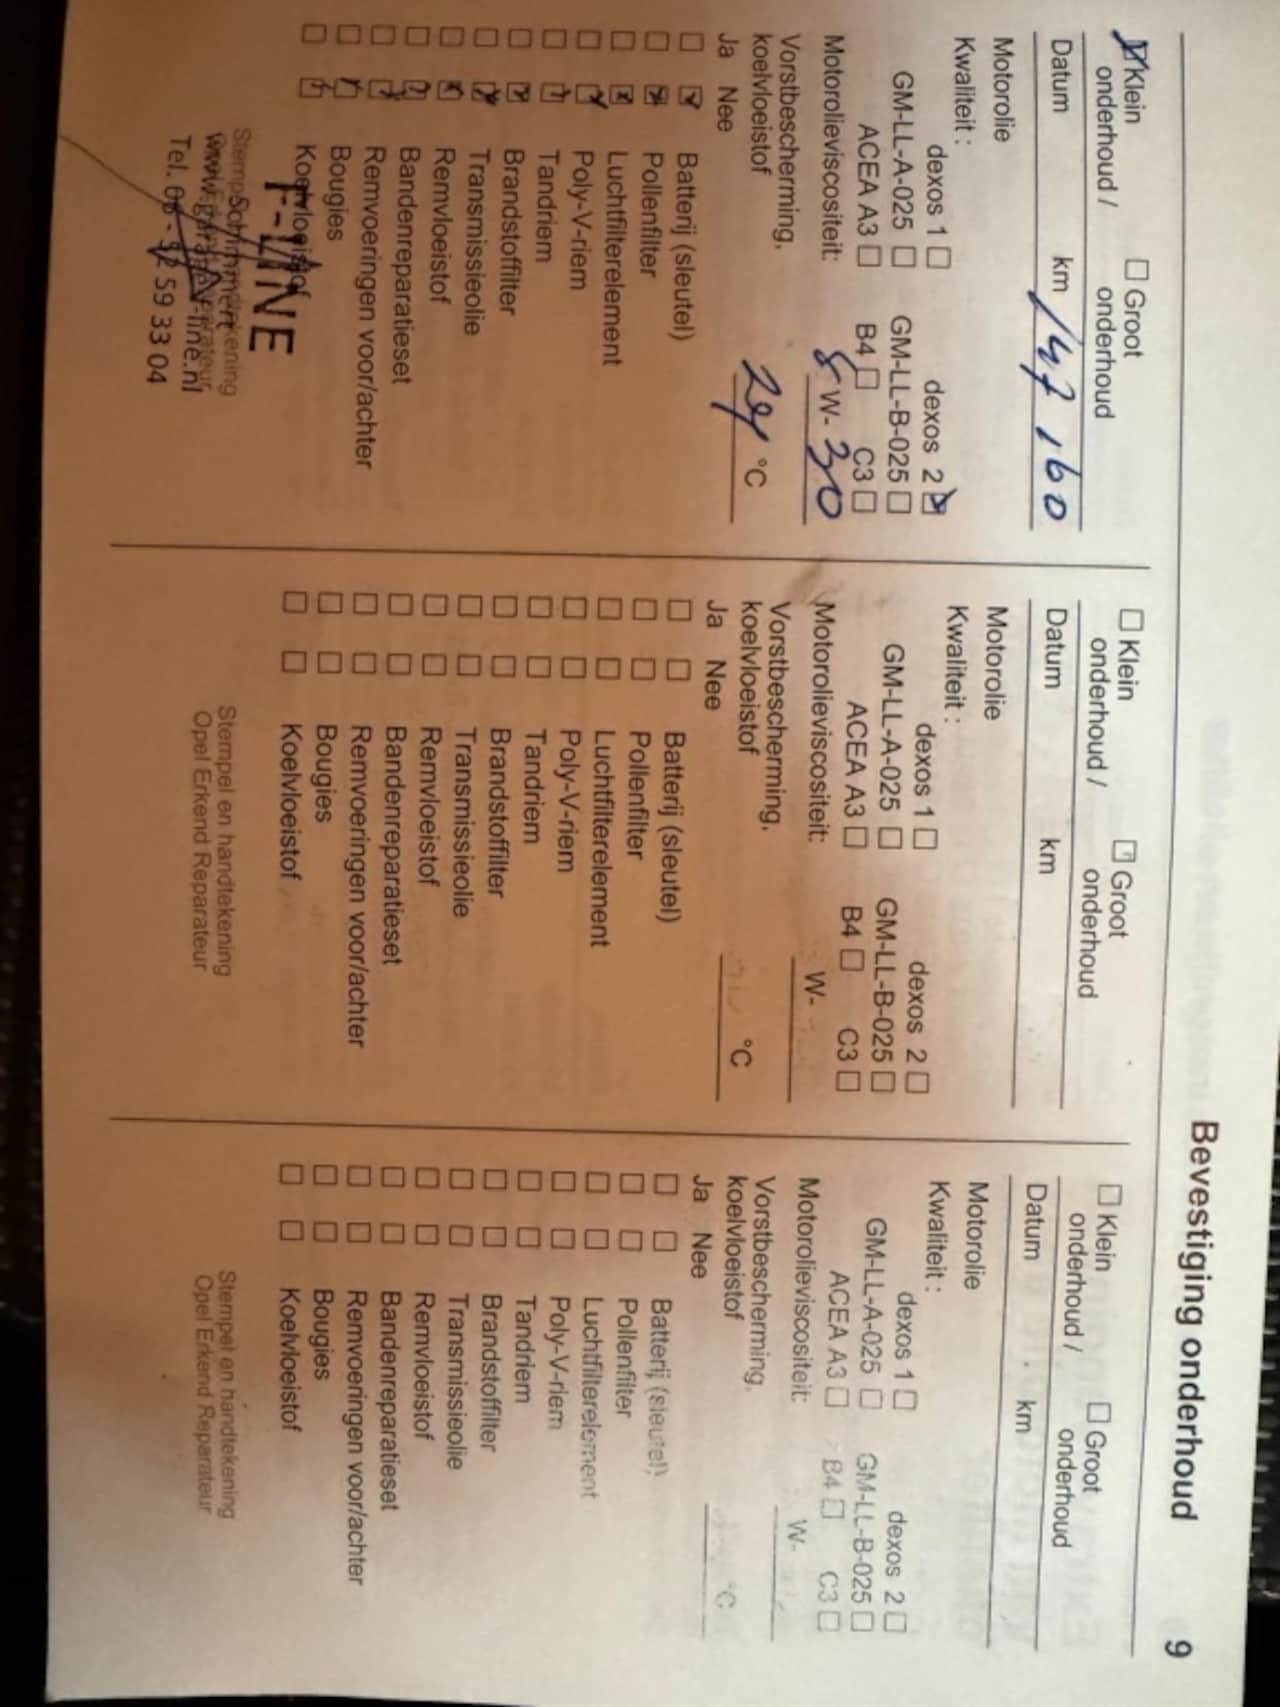 Bevestiging onderhoud 9
Klein onderhoud /
Groot onderhoud
Datum km 147 160
Motorolie
Kwaliteit :
dexos 1 dexos 2
GM-LL-A-025 GM-LL-B-025
ACEA A3 B4 C3
Motorolieviscositeit: 5 W- 30
Vorstbescherming,
koelvloeistof °C
Ja Nee
Batterij (sleutel)
Pollenfilter
Luchtfilterelement
Poly-V-riem
Tandriem
Brandstoffilter
Transmissieolie
Remvloeistof
Bandenreparatieset
Remvoeringen voor/achter
Bougies
Koelvloeistof
F-LINE
Klein onderhoud /
Groot onderhoud
Datum km
Motorolie
Kwaliteit :
dexos 1 dexos 2
GM-LL-A-025 GM-LL-B-025
ACEA A3 B4 C3
Motorolieviscositeit: W-
Vorstbescherming,
koelvloeistof °C
Ja Nee
Batterij (sleutel)
Pollenfilter
Luchtfilterelement
Poly-V-riem
Tandriem
Brandstoffilter
Transmissieolie
Remvloeistof
Bandenreparatieset
Remvoeringen voor/achter
Bougies
Koelvloeistof
Stempel en handtekening
Opel Erkend Reparateur
Klein onderhoud /
Groot onderhoud
Datum km
Motorolie
Kwaliteit :
dexos 1 dexos 2
GM-LL-A-025 GM-LL-B-025
ACEA A3 B4 C3
Motorolieviscositeit: W-
Vorstbescherming,
koelvloeistof °C
Ja Nee
Batterij (sleutel)
Pollenfilter
Luchtfilterelement
Poly-V-riem
Tandriem
Brandstoffilter
Transmissieolie
Remvloeistof
Bandenreparatieset
Remvoeringen voor/achter
Bougies
Koelvloeistof
Stempel en handtekening
Opel Erkend Reparateur